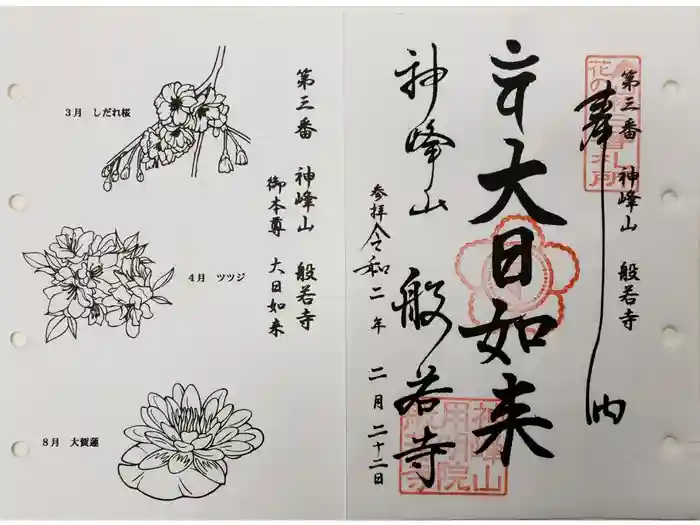 第三番 神峰山 般若寺
奉納
大日如来
参拝 令和二年 二月二十二日
神峰山 般若寺
神峰山
用明院
般若寺
第三番 神峰山 般若寺
御本尊 大日如来
3月 しだれ桜
4月 ツツジ
8月 大賀蓮